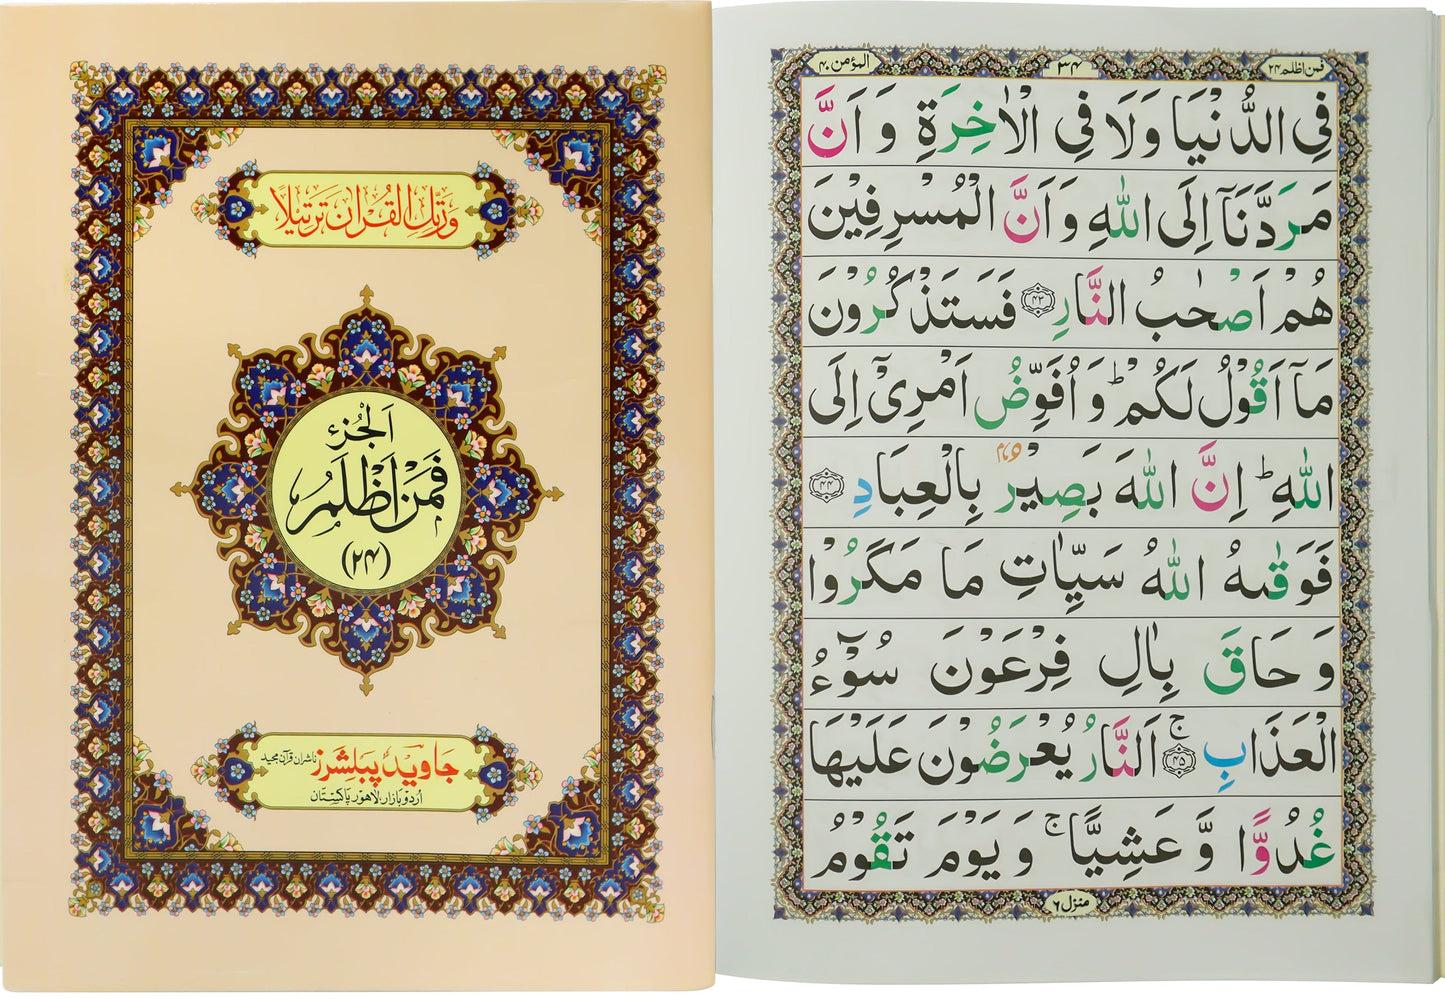 وَرَتِّلِ الْقُرْاٰنَ تَرْتِيْلًا
اَلْجُزْءُ
فَمَنْ اَظْلَمُ
(۲۴)
جاوید پبلشرز ناشران قرآن مجید
اردو بازار، لاہور پاکستان
فمن اظلم ۲۴ ۳۴ المؤمن ۴۰
فِي الدُّنْيَا وَلَا فِي الْاٰخِرَةِ وَ اَنَّ
مَرَدَّنَآ اِلَى اللّٰهِ وَ اَنَّ الْمُسْرِفِيْنَ
هُمْ اَصْحٰبُ النَّارِ ۴۳ فَسَتَذْكُرُوْنَ
مَآ اَقُوْلُ لَكُمْ ؕ وَ اُفَوِّضُ اَمْرِيْٓ اِلَى
اللّٰهِ ؕ اِنَّ اللّٰهَ بَصِيْرٌۢ بِالْعِبَادِ ۴۴
فَوَقٰىهُ اللّٰهُ سَيِّاٰتِ مَا مَكَرُوْا
وَ حَاقَ بِاٰلِ فِرْعَوْنَ سُوْٓءُ
الْعَذَابِ ۴۵ ۚ اَلنَّارُ يُعْرَضُوْنَ عَلَيْهَا
غُدُوًّا وَّ عَشِيًّا ۚ وَ يَوْمَ تَقُوْمُ
منزل ۶